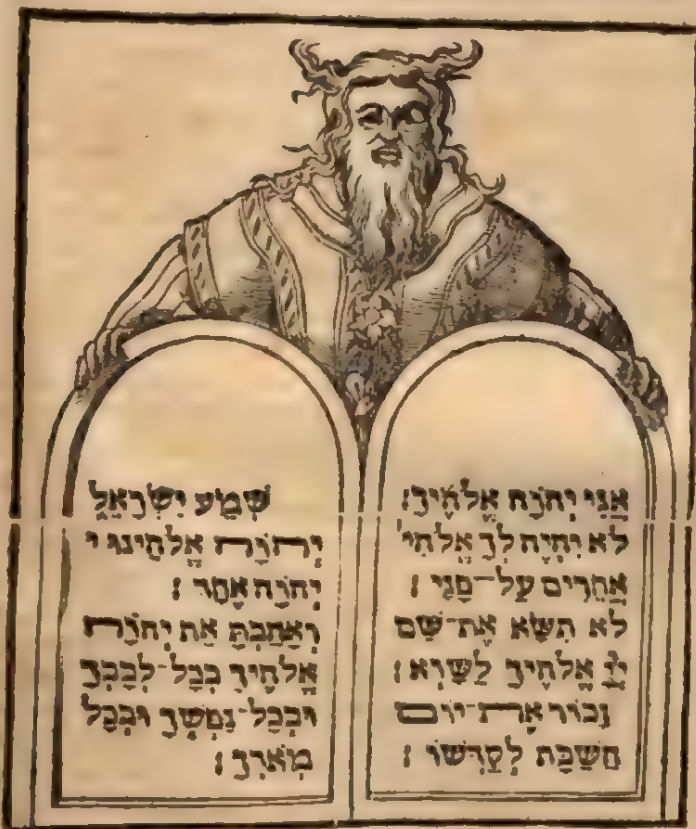 אֲנִי יְהוָה אֱלֹהֶיךָ׃
לֹא יִהְיֶה לְךָ אֱלֹהִי'
אֲחֵרִים עַל־פָּנָי׃
לֹא תִשָּׂא אֶת־שֵׁם
יְיָ אֱלֹהֶיךָ לַשָּׁוְא׃
זָכוֹר אֶת־יוֹם
הַשַּׁבָּת לְקַדְּשׁוֹ׃
שְׁמַע יִשְׂרָאֵל
יְהוָה אֱלֹהֵינוּ י
יְהוָה אֶחָד׃
וְאָהַבְתָּ אֵת יְהוָה
אֱלֹהֶיךָ בְּכָל־לְבָבְךָ
וּבְכָל־נַפְשְׁךָ וּבְכָל
מְאֹדֶךָ׃